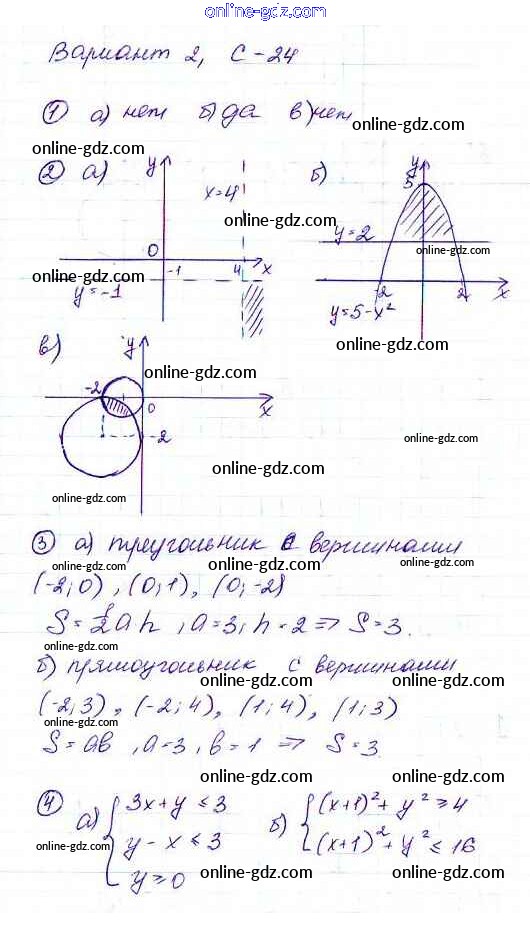 online-gdz.com
Вариант 2, С-24
① а) нет б) да в) нет
online-gdz.com
online-gdz.com
② а) y x=4 online-gdz.com
0 -1 4 x
online-gdz.com
y=-1
online-gdz.com
б) y 5
online-gdz.com
y=2
online-gdz.com
-2 2 x
y=5-x²
online-gdz.com
в) y
online-gdz.com
online-gdz.com
-2 0 x
online-gdz.com
-2
online-gdz.com
online-gdz.com
online-gdz.com
online-gdz.com
③ а) треугольник с вершинами
online-gdz.com
(-2;0), (0;1), (0;-2)
online-gdz.com
S=½ah, a=3, h=2 ⇒ S=3.
online-gdz.com
б) прямоугольник с вершинами
online-gdz.com
(-2;3), (-2;4), (1;4), (1;3)
online-gdz.com
online-gdz.com
S=ab, a=3, b=1 ⇒ S=3
online-gdz.com
online-gdz.com
④ а) { 3x+y ≤ 3
y-x ≤ 3
y ≥ 0
online-gdz.com
б) { (x+1)²+y² ≥ 4
(x+1)²+y² ≤ 16
online-gdz.com
online-gdz.com
online-gdz.com
online-gdz.com